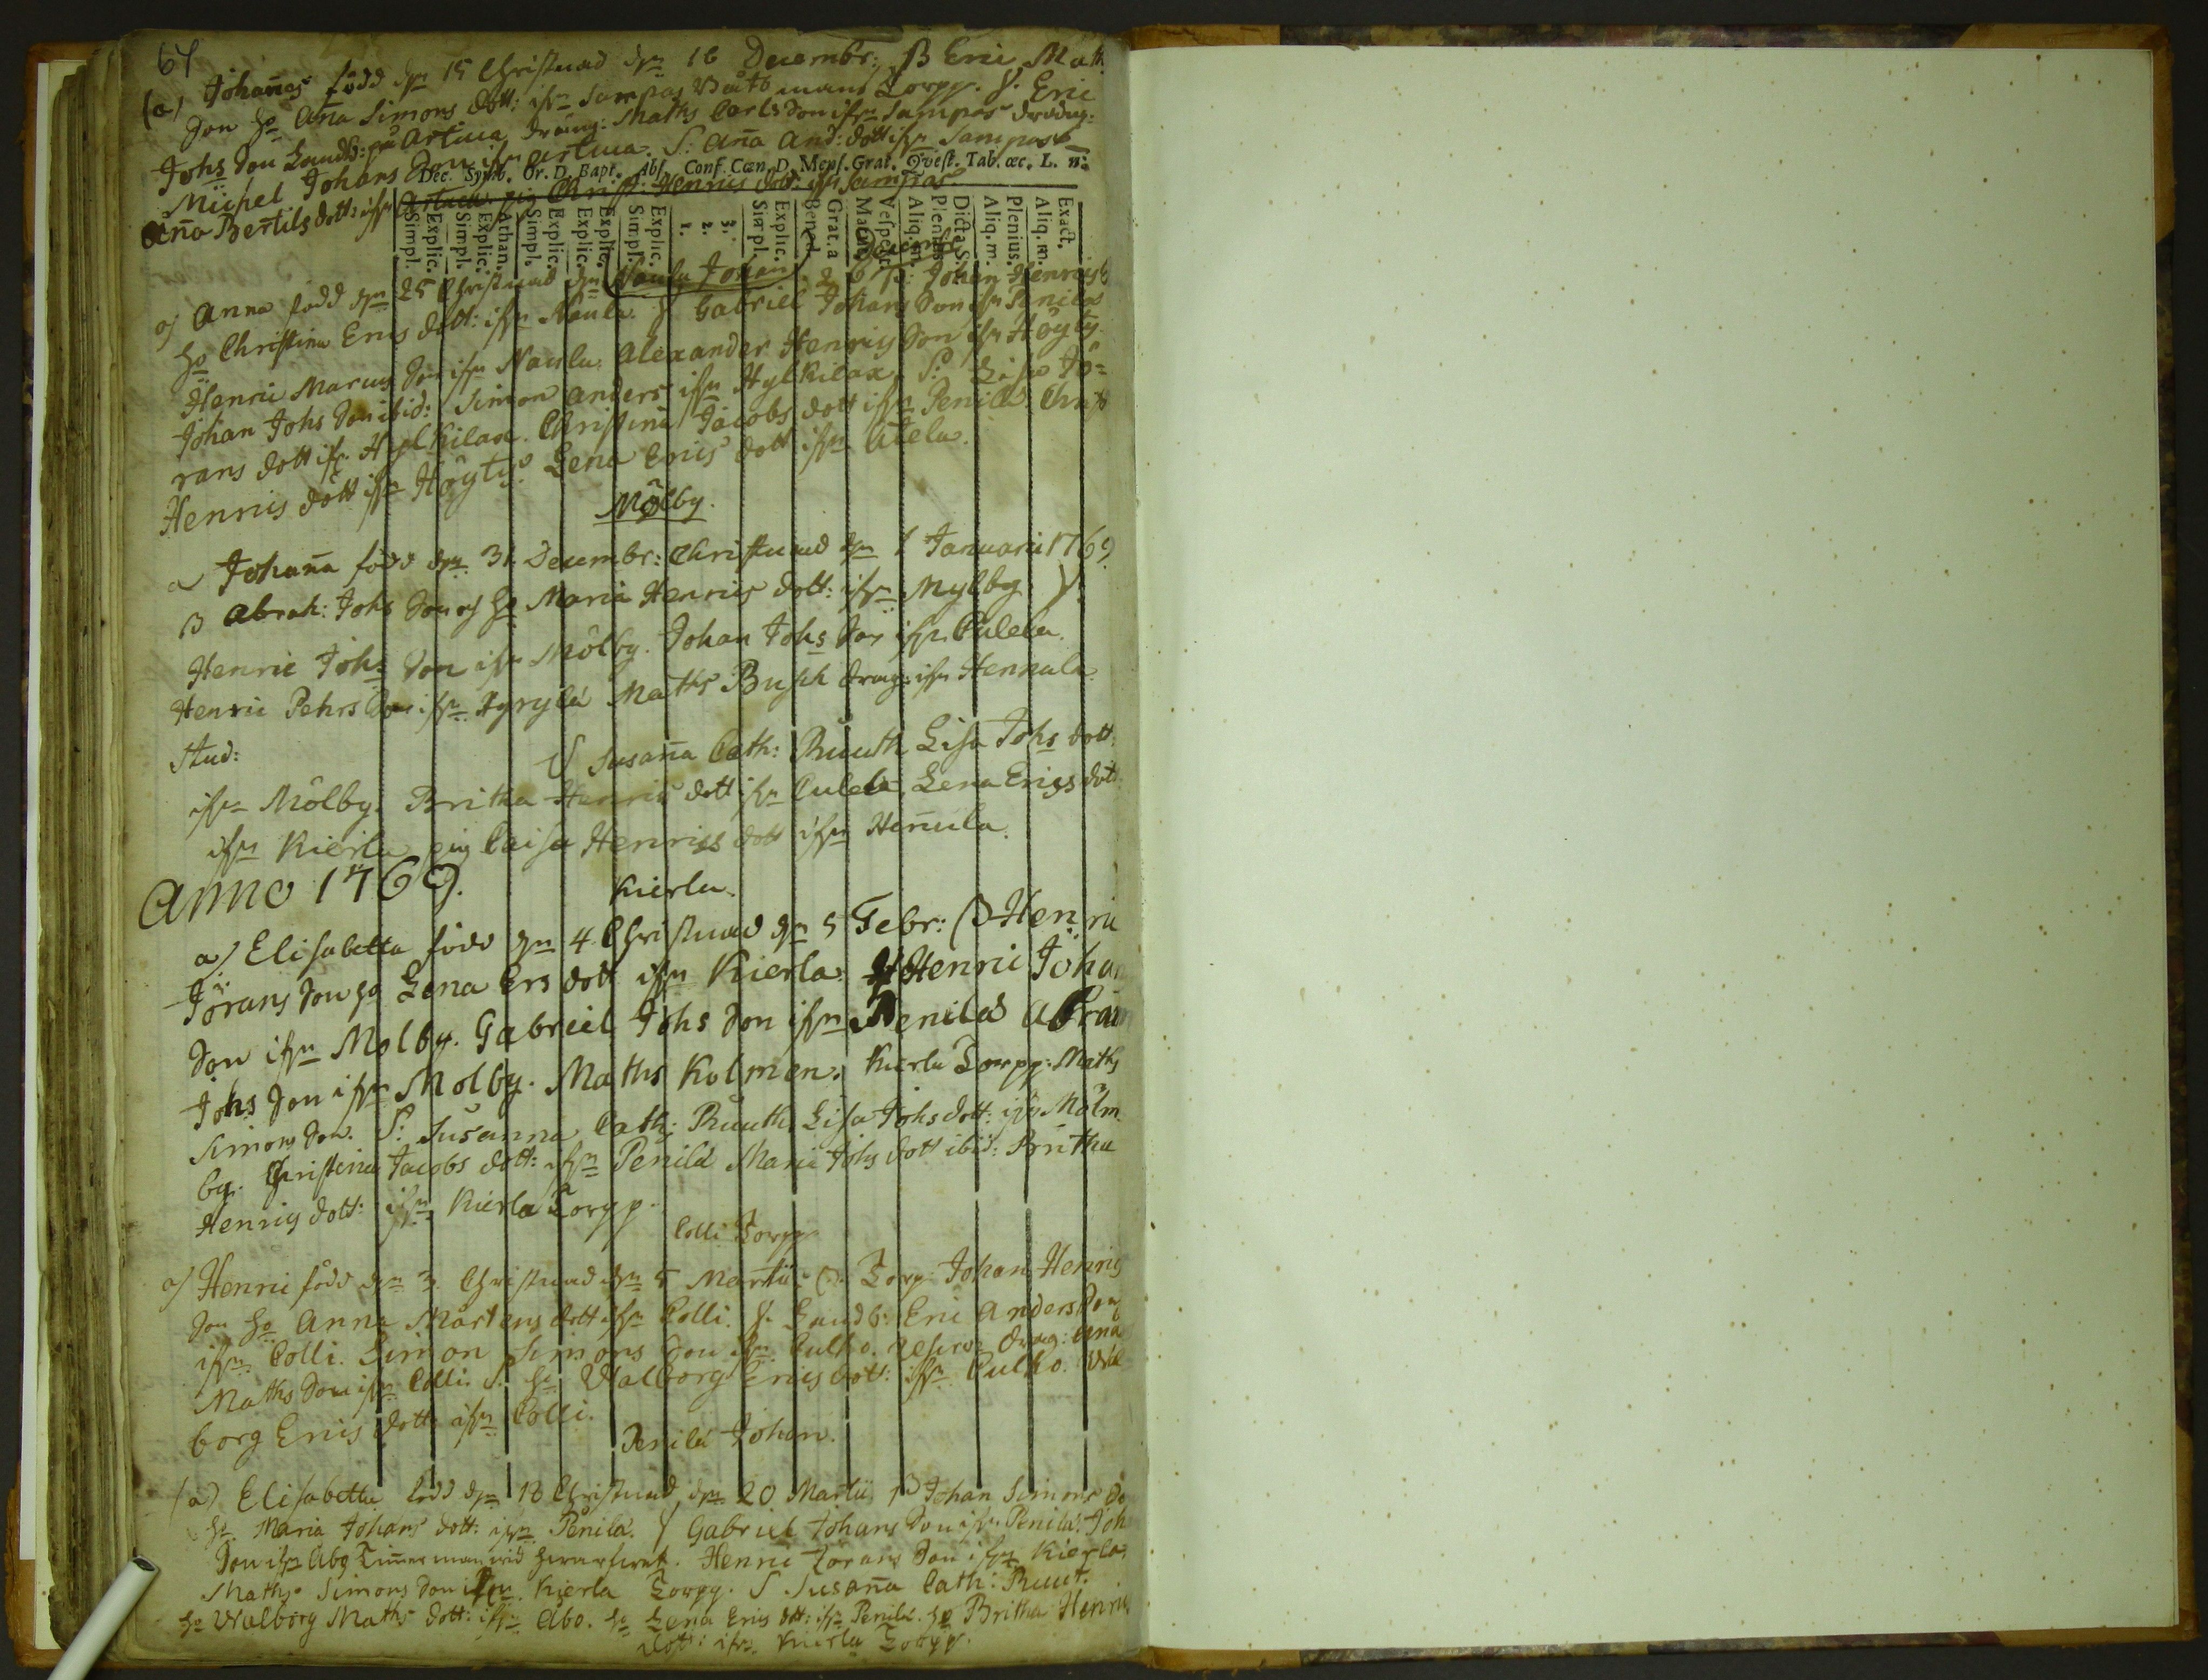 64
(a) Johañes född dn 15 Christnad dn 16 Decembr: B Eric Math
son ho Aña Simons dott: ifrn Sampas Båtsmans Torpp. S. Eric
Johs son Landb: på Artuca dräng: Maths Carlsson ifrn Sampas dräng:
Michel Johans son ifrn Artuca. S: Aña And: dott ifrn Sampas
Dec. Symb. Or. D. Bapt. Abs. Conf. Cœn. D. Mens. Grat. Qvest. Tab. œc. L. n:
Aña Bertils dott: ifrn Artuca pig Christ: Henrics dott: ifrn Sampas
Simpl. Explic. Simpl. Explic. Athan. Simpl. Explic. Explic. Explic. Simpl. Explic. 1. 2. 3. Simpl. Explic. Bened. Grat. a Matut. Vespert. Aliq. m. Plenius Dicta S. Aliq. m. Plenius. Aliq. m. Exact.
Naula Johan
a) Anna född dn 25 Christnad dn 26 B: Johan Henrics
ho Christina Erics dott: ifrn Naula. S Gabriel Johans son ifrn Penilä
Henric Marcus son ifrn Naula. Alexander Henrics son ifrn Höyty
Johan Johs son ibid: Simon Anders ifrn Hylkilax. S: Lisa Jö=
rans dott ifr. Hylkilax. Christina Jacobs dott ifrn Penilä. Christ
Henrics dott ifrn Höytis. Lena Erics dott ifrn
Mölby.
a Johaña född dn 31 Decembr: Christnad dn 1 Januarii 1769
B Abrah: Johs son ho Maria Henrics dott: ifrn Mylby. S.
Henric Johs son ifrn Mölby. Johan Johs son ifrn Culela.
Henric Pehrs son ifrn Hyrylä Maths Busch dräng: ifrn Hennala.
Stud: S Susaña Cath: Ruuth Lisa Johs dott:
ifrn Mölby. Britha Henrics dott ifrn Culela, Lena Erics dott
ifrn Kierla pig Caisa Henrics dott ifrn Heñula.
Anno 1769. Kierla.
a) Elisabetta född dn 4 Christnad dn 5 Febr: B Henric
Jörans son ho Lena Ers dott ifrn Kierla. S Henric Johan
son ifrn Molby. Gabriel Johs son ifrn Penilä Abram
Johs son ifrn Molby. Maths Kolmen. Kierla Torpp: Maths
Simons son. S: Susanna Cath: Ruuth, Lisa Johs dott: ifrn Mölm
by. Christina Jacobs dott: ifrn Penilä Maria Johs dott ibid: Britha
Henrics dott: ifrn Kierla Torpp.
Colli Torpp
a) Henric född dn 3 Christnad dn 5 Martii B. Torp: Johan Henrics
son ho Anna Mårtens dott ifrn Colli. S. Landb: Eric Anders son
ifrn Colli. Simon Simons son ifrn Culho. Reserv: dräng:
Maths son ifrn Colli. S. ho Walborg Erics dott: ifrn Culho. Wal
borg Erics dott: ifrn Colli.
Penilä Johan.
(a) Elisabetta född dn 18 Christnad dn 20 Martii B Johan Simons so
ho Maria Johans dott: ifrn Penilä. S Gabriel Johans son ifrn Penilä. Joh
son ifrn Åbo Timmerman Henric Jörans son ifrn Kierla,
Maths Simons son ifrn Kierla Torpp. S Susaña Cath: Ruut.
ho Walborg Maths dott: ifrn Åbo. ho Lena Erics dott: ifrn Penilä. ho Britha Henrics
dott: ifrn Kierla Torpp.